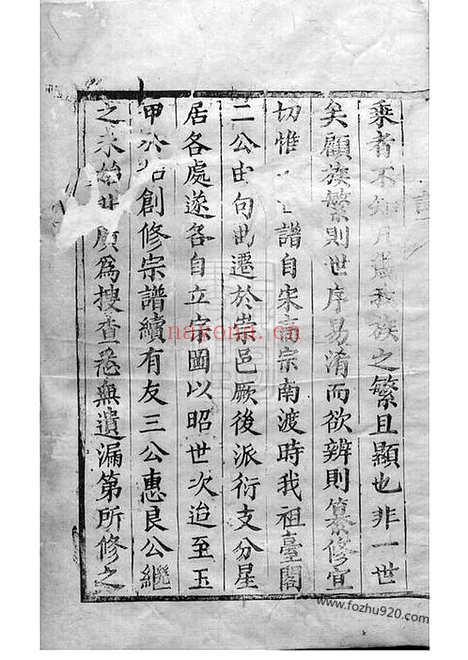 乘者不知凡幾我族之繁且顯也非一世
矣顧族繁則世序易淆而欲辨則纂修宜
切惟譜自宋高宗南渡時我祖臺閣
二公由句曲遷於崇邑厥後派衍支分星
居各處遂各自立宗圖以昭世次迨至玉
甲公始創修宗譜續有友三公惠良公繼
之未始非廣為搜查悉無遺漏第所修之
nakona.cn
www.fozhu920.com